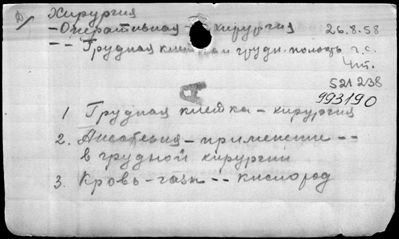 Хирургия
-Оперативная хирургия 26.8.58
-- Грудная клетка и груди. полость г.с.
Чит.
521238
993190
А
1 Грудная клетка - хирургия
2. Анестезия - применение --
в грудной хирургии
3. Кровь-газы -- кислород